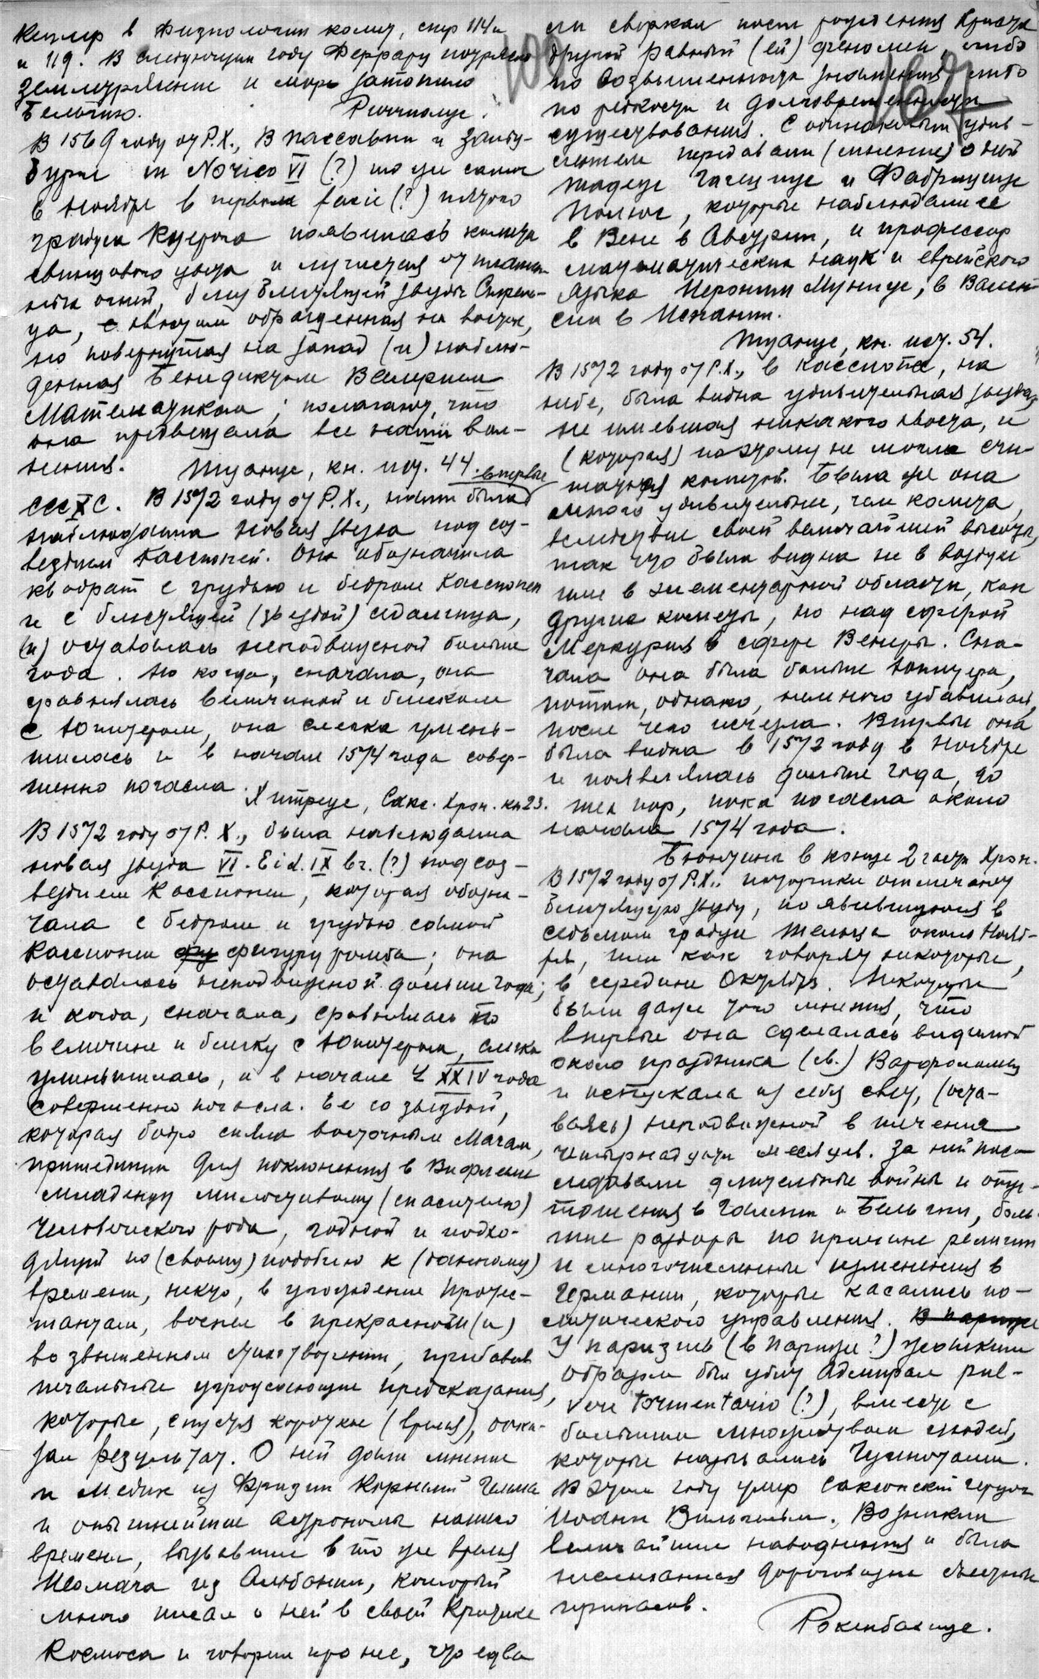 Кеплер в Физиологии комет, стр 114 и
и 119. В следующем году Феррару потрясло
землетрясение и море затопило
Бельгию. Риччиолус.
В 1569 году от Р.Х., В Пассавии и Зальц-
бурге in Norico VI (?) того же самого
в Ноябре в первом facie (?)
градуса Козерога появилась комета
свинцового цвета и
огней, близ блестящей звезды Стрель-
ца, с хвостом обращенная на восток,
но повернутая на запад (и) наблю-
денная Бенедиктом
Математиком; полагают, что
она предвещала все наши вол-
нения. Туанус, кн. ист. 44.
В 1572 году от Р.Х., нами была впервые
наблюдаема новая звезда под соз-
вездием Кассиопеи. Она обозначила
квадрат с грудью и бедром Кассиопеи
и с блестящей (звездой) седалища,
(и) оставалась неподвижной больше
года. Но когда, сначала, она
равнялась величиной и блеском
с Юпитером, она слегка умень-
шилась и в начале 1574 года совер-
шенно погасла.
Хитреус, Сакс. Хрон. кн 23.
В 1572 году от Р.Х., была наблюдаема
новая звезда VI. Eid. IX br. (?) под соз-
вездием Кассиопеи, которая обозна-
чала с бедром и грудью самой
Кассиопеи фигуру ромба; она
оставалась неподвижной дольше года;
и когда, сначала, сравнялась по
величине и блеску с Юпитером, слегка
уменьшилась, а в начале XXIV года
совершенно погасла. Ее со звездой,
которая ярко сияла восточным Магам,
пришедшим для поклонения в Вифлееме
младенцу милостивому (спасителю)
человеческого рода, годной и подхо-
дящей по (своему) подобию к (данному)
времени, некто, в угождение Протес-
тантам, воспел в прекрасном (и)
возвышенном стихотворении, прибавив
печальные угрожающие предсказания,
которые, спустя короткое (время), оказал
результат. О ней дали мнение
и медик из Фризии Корнелий Гемма
и опытнейшие астрономы нашего
времени, вызвавшие в то же время
из Альбании, который
много писал о ней в своей Критике
Космоса и говорил про нее, что едва
ли сверкал после рождения Христа
другой равный (ей) феномен, либо
по возвышенному значению, либо
по редкости и долговременности
существования. С одинаковым удив-
лением передавали (мнение) о ней
Тадеус Гагециус и Фабрициус
Паулюс, которые наблюдали ее
в Вене в Австрии, и профессор
математических наук и еврейского
языка Иероним Мунчус, в Вален-
сии в Испании.
Туанус, кн. ист. 54.
В 1572 году от Р.Х., в Кассиопее, на
небе, была видна удивительная звезда,
не имевшая никакого хвоста, и
(которая) поэтому не могла счи-
таться кометой. Была же она
много удивительнее, чем комета,
вследствие своей величайшей высоты,
так что была видна не в воздухе
или в элементарной области, как
другие кометы, но над сферой
Меркурия в сфере Венеры. Сна-
чала она была больше Юпитера,
потом, однако, немного убавилась,
после чего исчезла. Впервые она
была видна в 1572 году в Ноябре
и появлялась дольше года, до
тех пор, пока погасла около
начала 1574 года.
Бюнтинг в конце 2 части Хрон.
В 1572 году от Р.Х., историки отмечают
блестящую звезду, появившуюся в
седьмом градусе Тельца около Нояб-
ря, или как говорят некоторые,
в середине Октября. Некоторые
были даже того мнения, что
впервые она сделалась видимой
около праздника (св.) Варфоломея
и испускала из себя свет, (оста-
ваясь) неподвижной в течение
четырнадцати месяцев. За ней после-
довали длительные войны и опус-
тошения в Галлии и Бельгии, боль-
шие раздоры по причине религии
и многочисленные изменения в
Германии, которые касались по-
литического управления.
У паризиев (в Париже?) жестоким
образом был убит Адмирал pul-
vere tormentario (?), вместе с
большим множеством людей,
которые назывались Гугенотами.
В этом году умер Саксонский герцог
Иоанн Вильгельм. Возникли
величайшие наводнения и была
неслыханная дороговизна съестных
припасов.
Рокенбахиус.